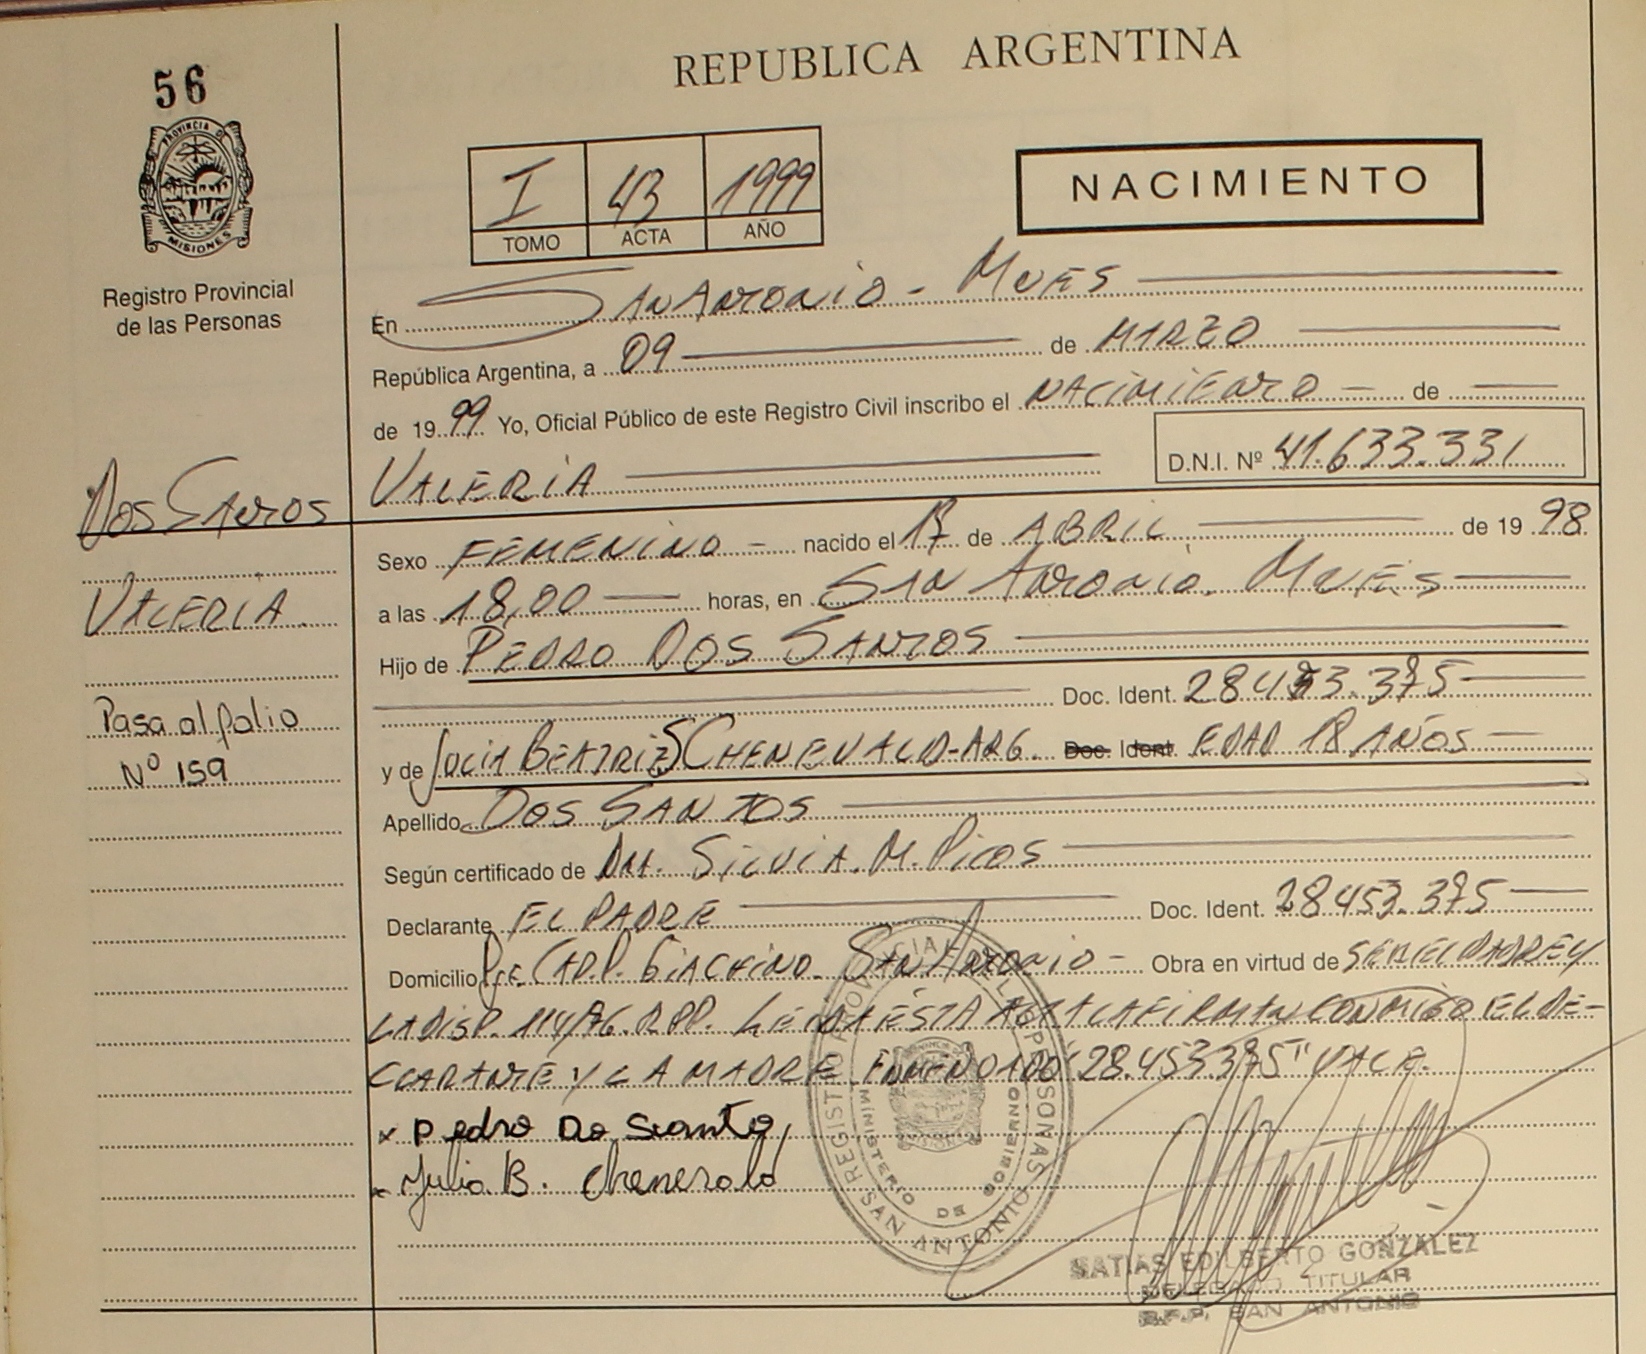 56
REPUBLICA ARGENTINA
PROVINCIA DE MISIONES
Registro Provincial
de las Personas
I 43 1999
TOMO ACTA AÑO
NACIMIENTO
En SAN ANTONIO - MNES
República Argentina, a 09 de MARZO
de 1999 Yo, Oficial Público de este Registro Civil inscribo el NACIMIENTO de
VALERIA
D.N.I. Nº 41.633.331
DOS SANTOS
VALERIA.
Pasa al folio
Nº 159
Sexo FEMENINO - nacido el 17 de ABRIL de 1998
a las 18,00 horas, en SAN ANTONIO. MNES
Hijo de PEDRO DOS SANTOS
Doc. Ident. 28.453.375
y de JULIA BEATRIZ CHENEVALO-ARG. Doc. Ident. EDAD 18 AÑOS
Apellido DOS SANTOS
Según certificado de DRA. SILVIA. M. PICOS
Declarante EL PADRE Doc. Ident. 28.453.375
Domicilio CAP. GIACHINO. SAN ANTONIO - Obra en virtud de SER EL PADRE Y
LA DISP. 114/76. RPP. LEIDA ESTA ACTA LA FIRMAN CONMIGO EL DE-
CLARANTE Y LA MADRE. ENMENDADO "28.453.375" VALE.
x Pedro Do Santo
x Julia B. Chenevalo
REGISTRO PROVINCIAL DE LAS PERSONAS
MINISTERIO DE GOBIERNO
SAN ANTONIO
MATIAS EDILBERTO GONZALEZ
DELEGADO TITULAR
R.P.P. SAN ANTONIO